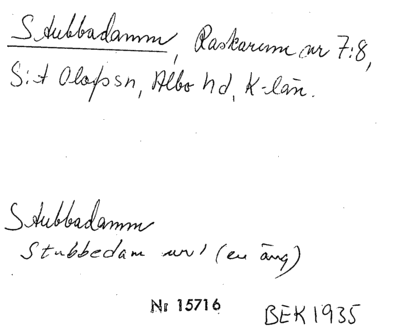 Stubbadamm, Raskarum nr 7:8,
S:t Olofs sn, Albo hd, K-län.
Stubbadamm
Stubbedam (en äng)
Nr 15716
BEK 1935